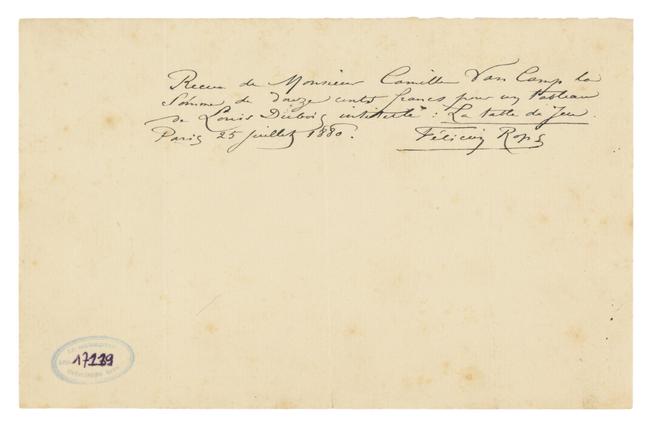 Recu de Monsieur Camille Van Camp la
Somme de douze cents francs pour un tableau
de Louis Dubois intitulé : La table de Jeu.
Paris 25 juillet 1880. Félicien Rops
17139